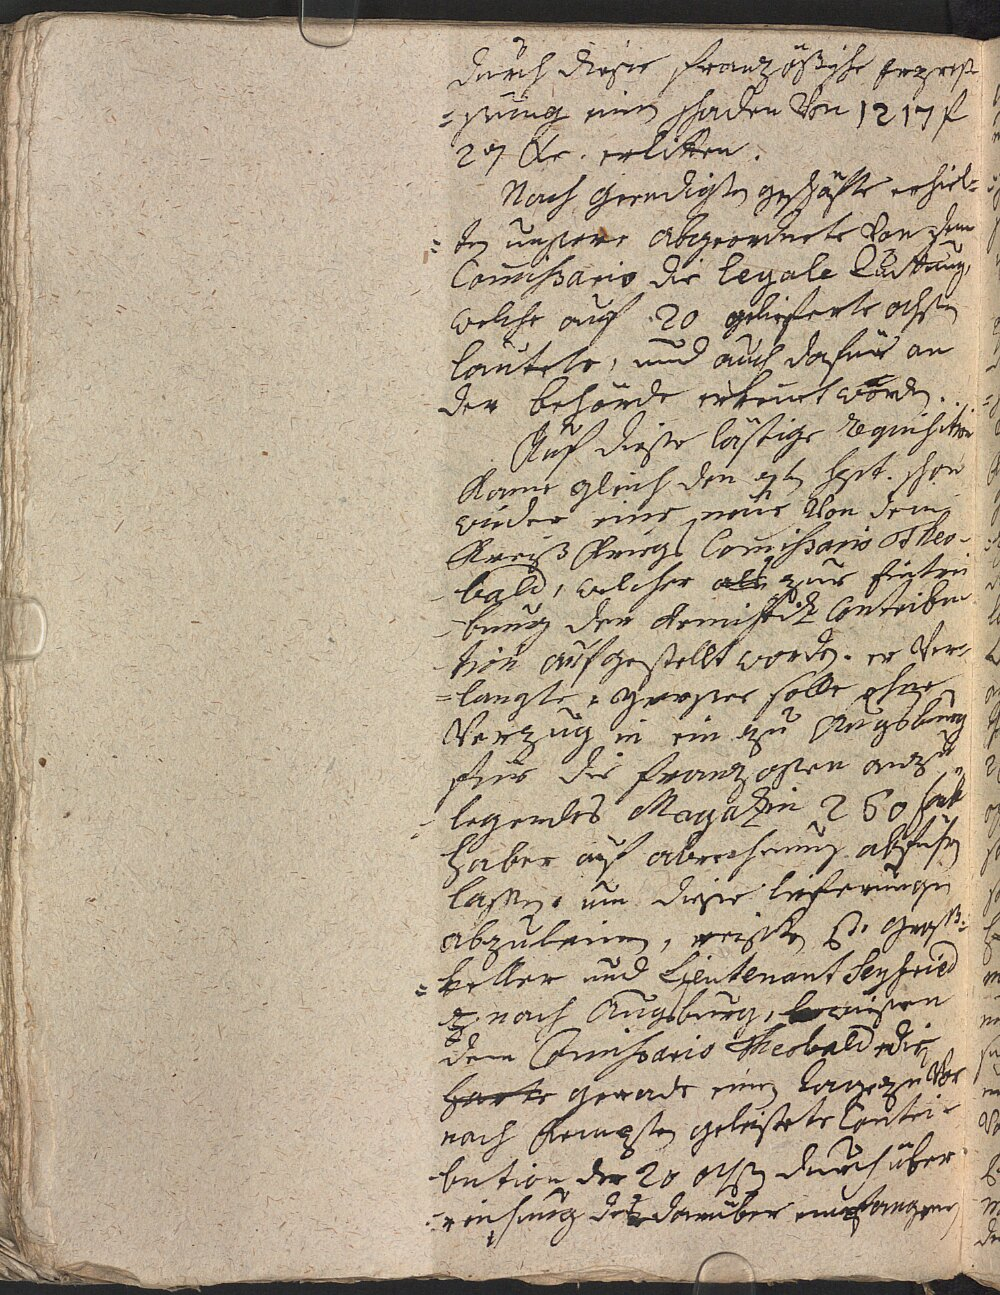 durch diese französische Erpres-
=sung einen schaden von 1217 f
27 Kr. erlitten.
Nach geendigten geschäfte erhiel-
=ten unsere abgeordnete von dem
Commissario die legale Quittung,
welche auf 20 gelieferte ochsen
lautete, und auch dafür an
der behörde erkennt worden.
Auf diese lästige requisition
kame gleich den 7t Sept. schon
wieder eine neue von dem
Kreiß Kriegs Commissario Theo-
-bald, welcher als zur Eintrei
-bung der Contribu-
-tion aufgestellt worden. er ver-
=langte, solle ohne
Verzug in ein zu Augsburg
für die franzosen anzu-
-legendes Magazin 260 sack
Haber auf abrechnung abführen
lassen. um diese lieferungen
abzuleinen, reisten H. Groß-
=keller und Lieutenant Seyfried
nach Augsburg, bewiesen
dem Commissario Theobald die
harte gerade einen tag zuvor
nach Kempten geleistete Contri-
-bution der 20 ochsen durch über-
-reichung des darüber empfangenen